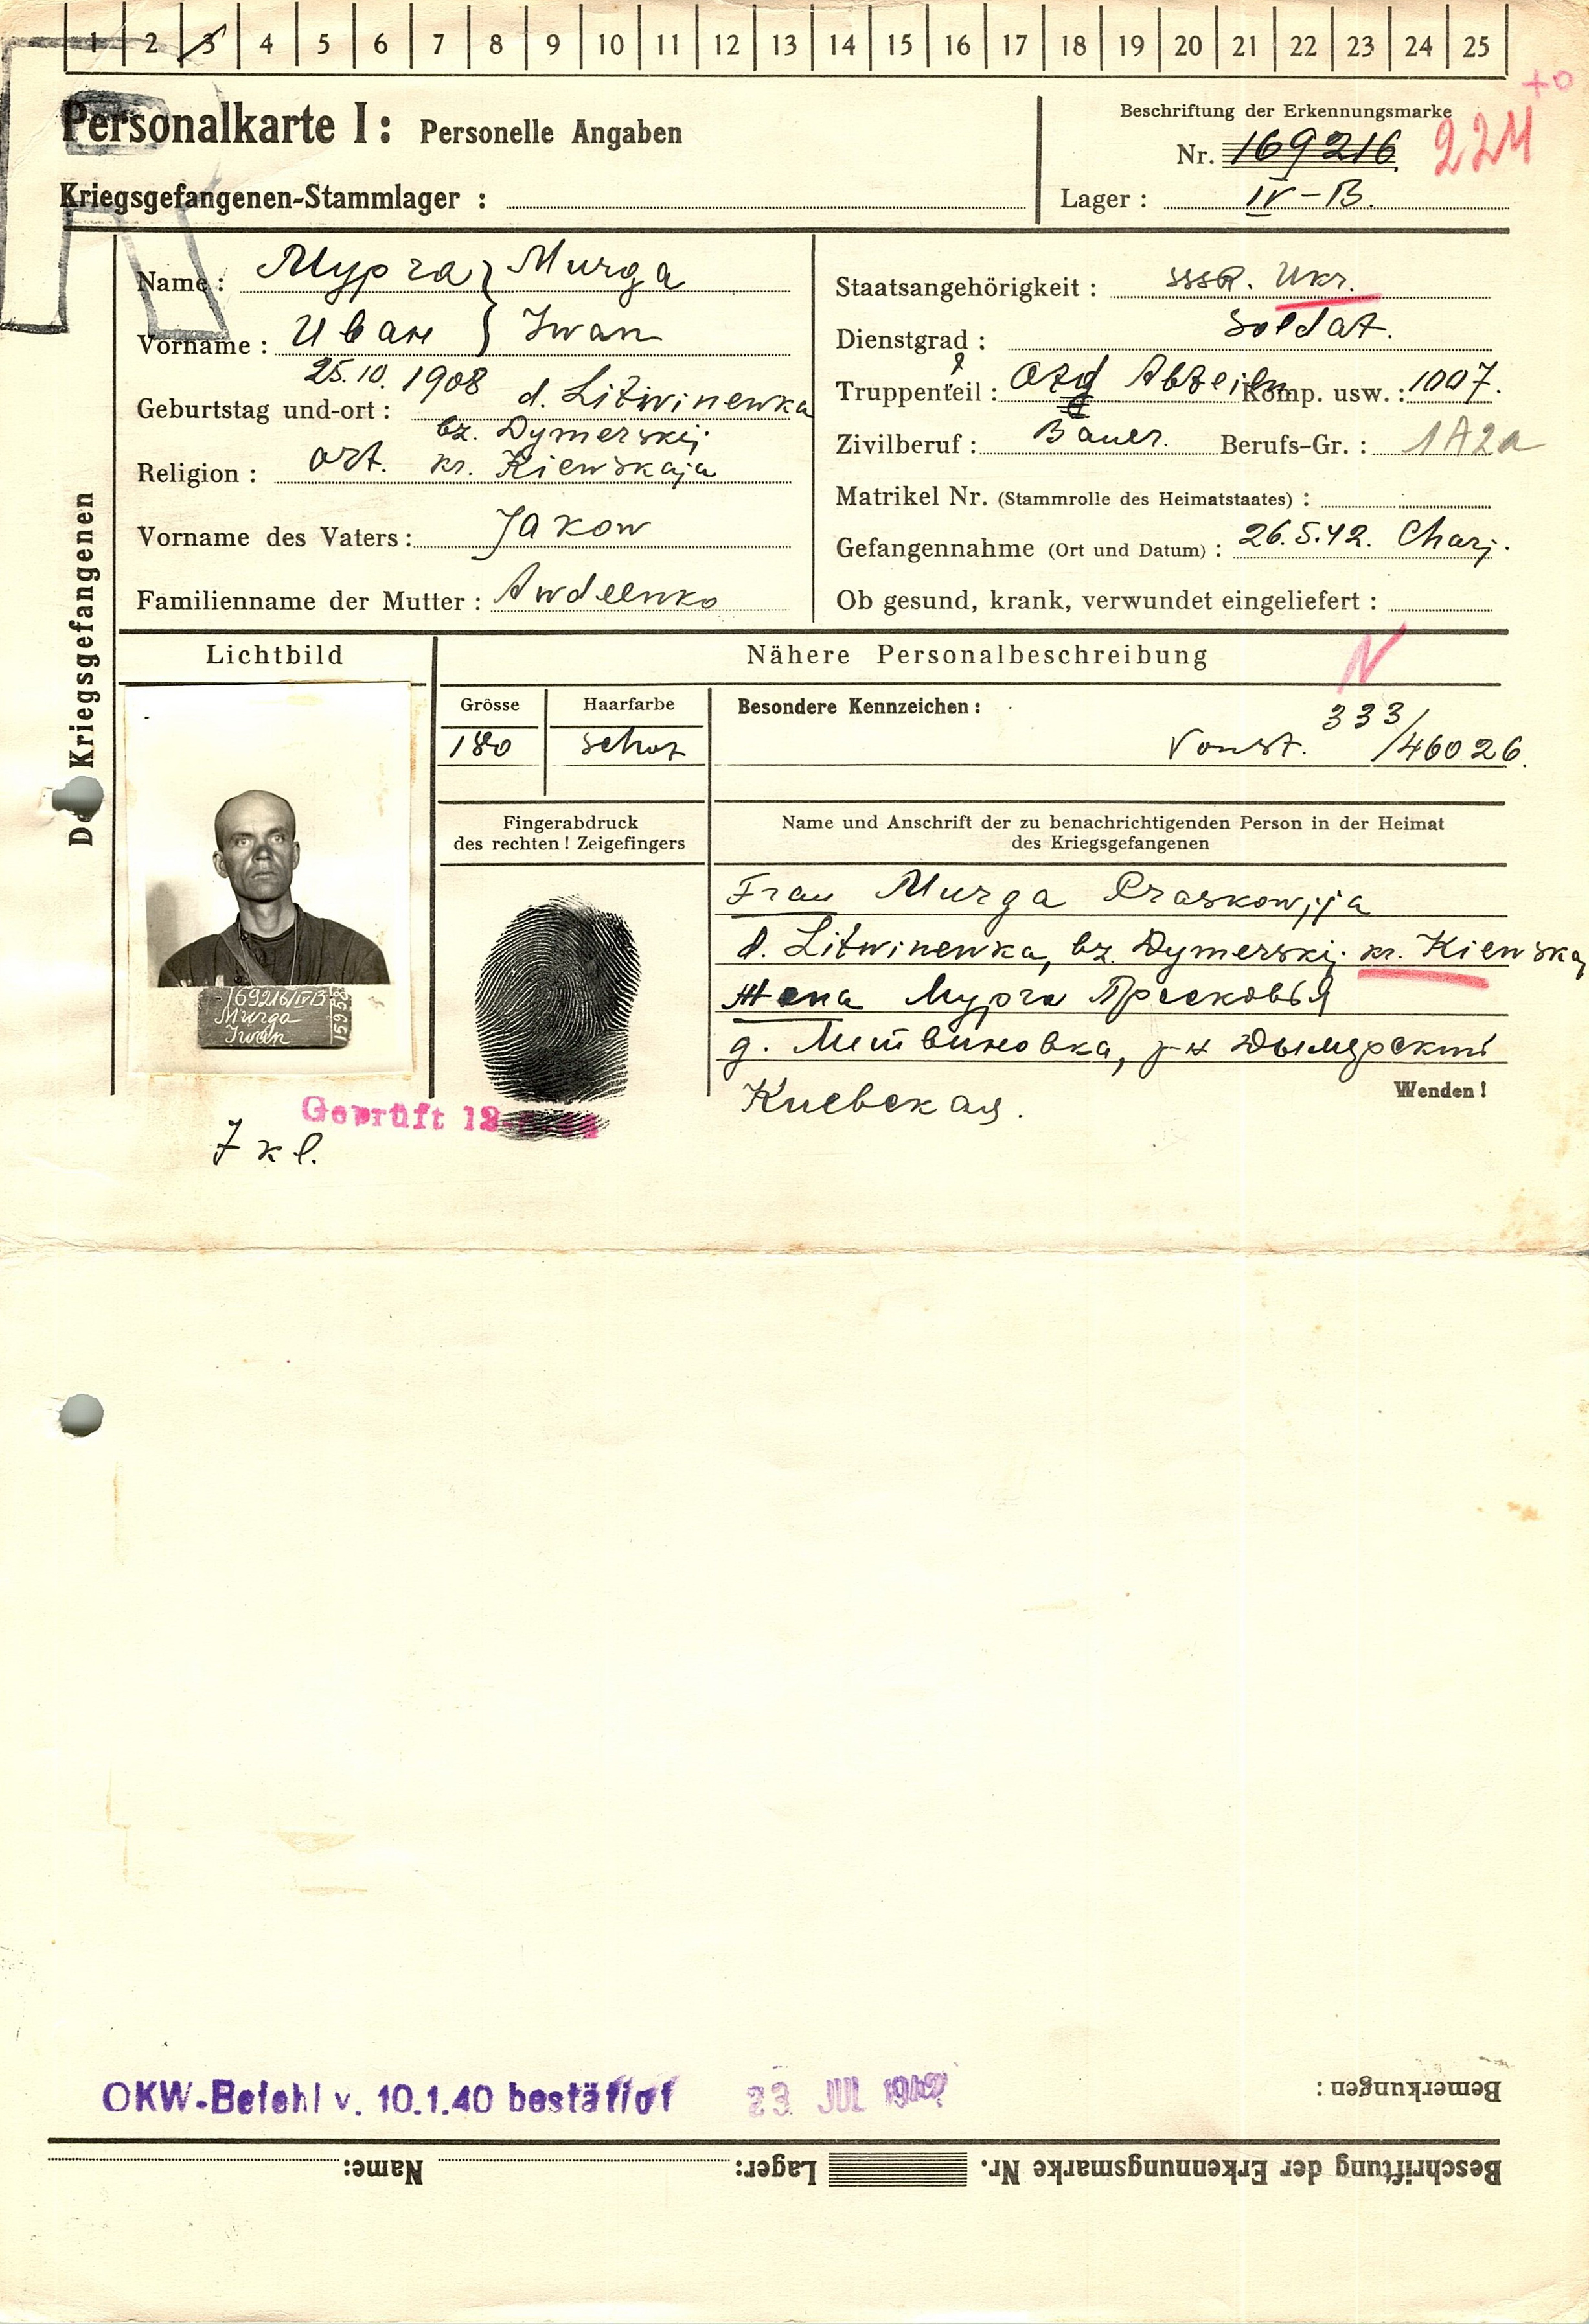 1 2 3 4 5 6 7 8 9 10 11 12 13 14 15 16 17 18 19 20 21 22 23 24 25
Personalkarte I: Personelle Angaben
Kriegsgefangenen-Stammlager :
Beschriftung der Erkennungsmarke
Nr. 169216 224
Lager : IV-B.
Des Kriegsgefangenen
Name : Мурга } Murga
Vorname : Иван } Iwan
25.10.1908 d. Litwinewka
Geburtstag und-ort :
bz. Dymerskij
Religion : ort. kr. Kiewskaja
Vorname des Vaters : Jakow
Familienname der Mutter : Awdeenko
Staatsangehörigkeit : SSSR. Ukr.
Dienstgrad : Soldat.
Truppenteil : Abteiln Komp. usw. : 1007.
Zivilberuf : Bauer. Berufs-Gr. : 1A2a
Matrikel Nr. (Stammrolle des Heimatstaates) :
Gefangennahme (Ort und Datum) : 26.5.42. Charj.
Ob gesund, krank, verwundet eingeliefert :
Lichtbild
Nähere Personalbeschreibung
N
Grösse Haarfarbe
180 schwz
Besondere Kennzeichen :
333/46026.
Fingerabdruck
des rechten ! Zeigefingers
Name und Anschrift der zu benachrichtigenden Person in der Heimat
des Kriegsgefangenen
Frau Murga Praskowjja
d. Litwinewka, bz. Dymerskij. kr. Kiewskaj
Жена Мурга Прасковья
д. Литвиновка, р-н Дымерский
Киевская.
Wenden !
169216/IVB
Murga
Iwan
Geprüft
OKW-Befehl v. 10.1.40 bestätigt 23 JUL 1942
Bemerkungen :
Beschriftung der Erkennungsmarke Nr. Lager: Name: